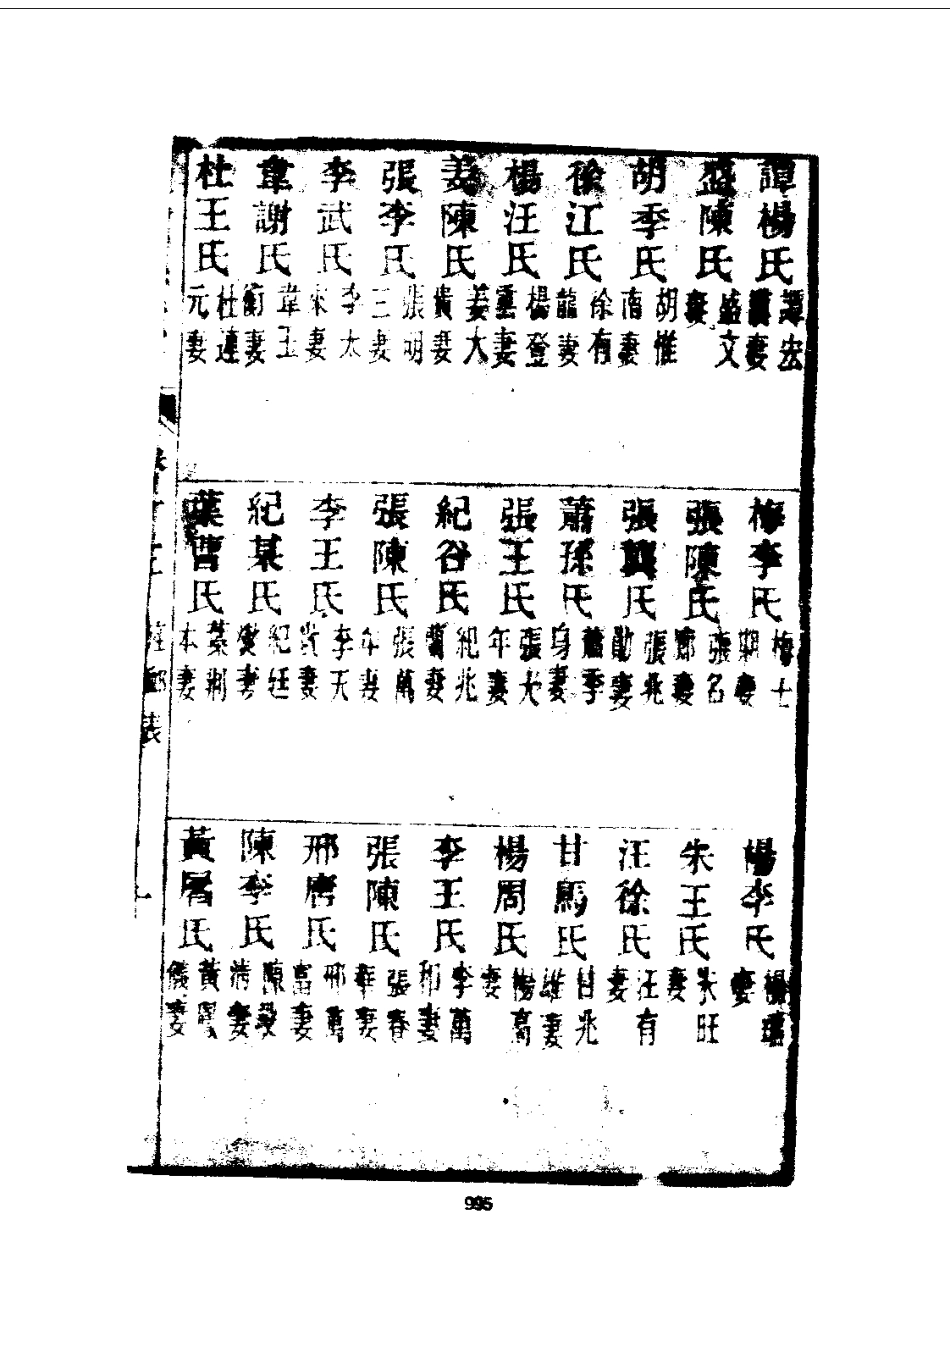 譚楊氏 譚宏妻
盛陳氏 盛文妻
胡季氏 胡惟南妻
徐江氏 徐有龍妻
楊汪氏 楊登雲妻
姜陳氏 姜大貴妻
張李氏 張明三妻
李武氏 李太來妻
韋謝氏 韋玉衡妻
杜王氏 杜蓮元妻
梅李氏 梅士期妻
張陳氏 張名鄉妻
張龔氏 張兆勛妻
蕭孫氏 蕭季身妻
張王氏 張大年妻
紀谷氏 紀兆蘭妻
張陳氏 張萬年妻
李王氏 李天貴妻
紀某氏 紀廷妻
葉曹氏 本妻
楊李氏 楊妻
朱王氏 朱旺妻
汪徐氏 汪有妻
甘馬氏 甘兆雄妻
楊周氏 楊高妻
李王氏 李萬和妻
張陳氏 張春華妻
邢唐氏 邢萬富妻
陳李氏 陳清妻
黃屠氏 黃鳳儀妻
表
995